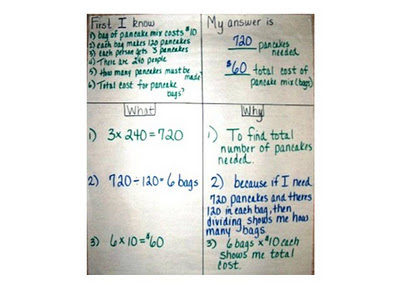 First I know
1) bag of pancake mix costs $10
2) each bag makes 120 pancakes
3) each person gets 3 pancakes
4) There are 240 people
5) How many pancakes must be made?
6) Total cost for pancake bags?
My answer is
720 pancakes
needed
$60 total cost of
pancake mix (bags)
What
1) 3x240=720
2) 720÷120=6 bags
3) 6x10=$60
Why
1) To find total
number of pancakes
needed.
2) because if I need
720 pancakes and theres
120 in each bag, then
dividing shows me how
many bags.
3) 6 bags x $10 each
shows me total
cost.